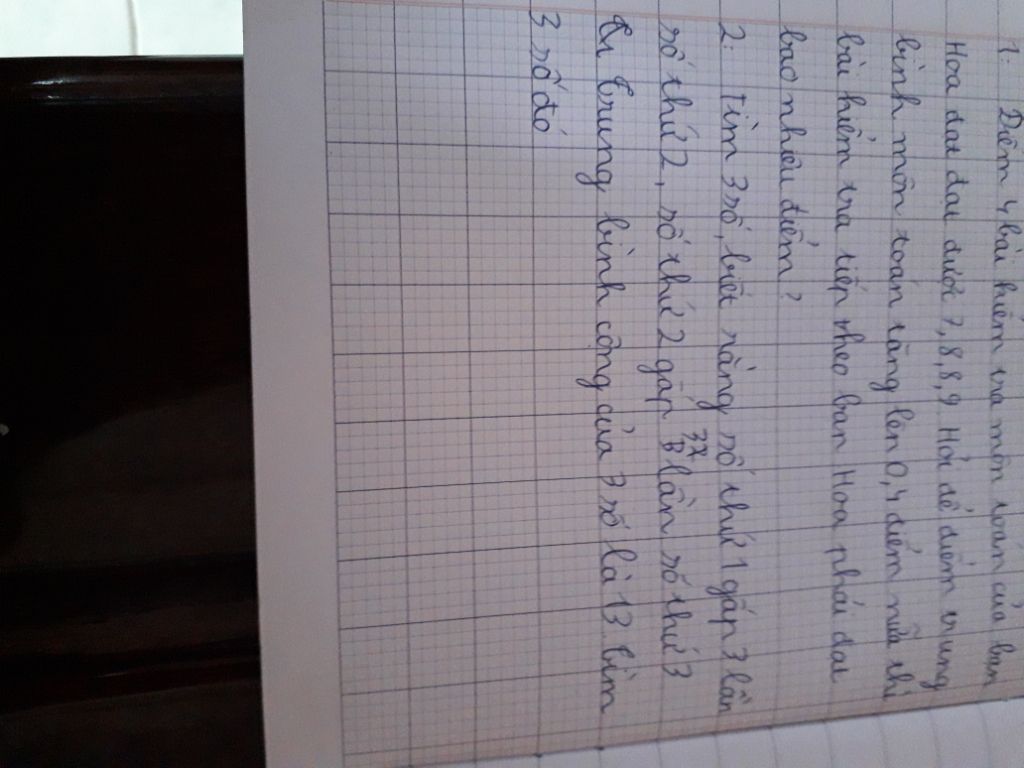 1: Điểm 4 bài kiểm tra môn toán của bạn
Hoa đạt đạt được 7, 8, 8, 9 Hỏi để điểm trung
bình môn toán tăng lên 0,4 điểm nữa thì
bài kiểm tra tiếp theo bạn Hoa phải đạt
bao nhiêu điểm?
2: Tìm 3 số, biết rằng số thứ 1 gấp 3 lần
số thứ 2, số thứ 2 gấp 3 lần số thứ 3
trung bình cộng của 3 số là 13 tìm
3 số đó